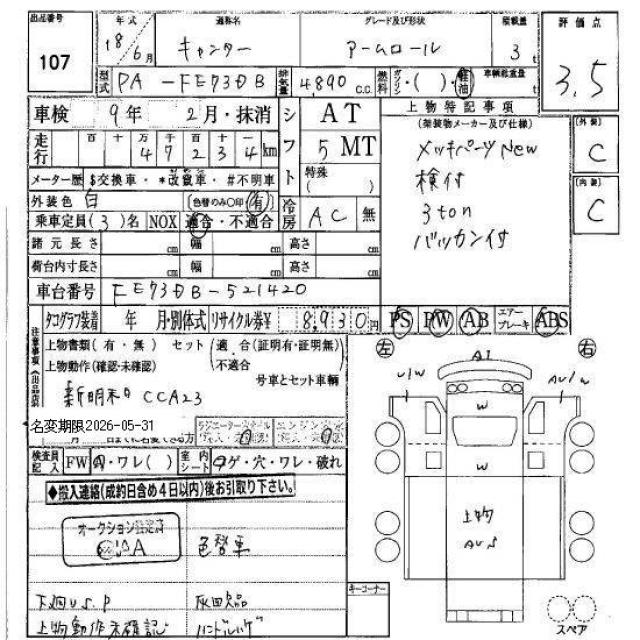 出品番号 年式 通称名 グレード及び形状 積載量 評価点
107 18年 6月 キャンター アームロール 3t 3.5
型式 PA-FE73DB 排気量 4,890 c.c. 燃料 ガソリン・( )・軽油 車輌総重量 t
車検 9年 2月・抹消 シフト AT 上物特記事項
走行 百 十 万 千 百 十 一 5 MT (架装物メーカー及び仕様) [外装]
4 7 2 3 4 km メッキパーツNew C
メーター歴 $交換車・*改鼠車・#不明車 特殊 ( ) 検付 [内装]
外装色 白 (色替のみ○印・有) 冷房 AC 無 3ton C
乗車定員(3)名 NOX 適合・不適合 バッカン付
諸元長さ cm 幅 cm 高さ cm
荷台内寸長さ cm 幅 cm 高さ cm
車台番号 FE73DB-521420
タコグラフ装着 年 月・別体式 リサイクル券¥ 8,930円 PS PW AB エアーブレーキ ABS
注意事項(出品店) 上物書類(有・無) セット(適合(証明有・証明無) 左 右
上物動作(確認・未確認) 不適合 A1
号車とセット車輌 U/W AU/W
新明和 CCA23 W
名変期限2026-05-31
月 日までに名変できる方 0 0
検査員記入 FW・ワレ( ) 室内シート コゲ・穴・ワレ・破れ W
◆搬入連絡(成約日含め4日以内)後お引取り下さい。
オークション 上物
A 色替車 AUS
下廻りS.P 灰皿欠品 キーコーナー
上物動作未確認 ハンドルハゲ スペア